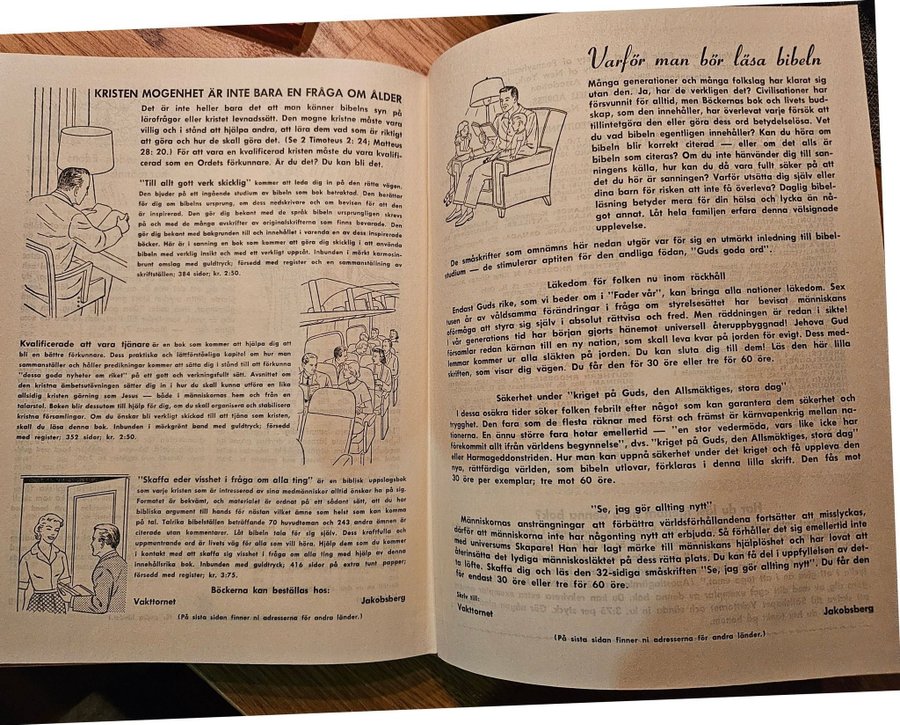 KRISTEN MOGENHET ÄR INTE BARA EN FRÅGA OM ÅLDER
Det är inte heller bara det att man känner bibelns syn på
lärofrågor eller kristet levnadssätt. Den mogne kristne måste vara
villig och i stånd att hjälpa andra, att lära dem vad som är riktigt
att göra och hur de skall göra det. (Se 2 Timoteus 2: 24; Matteus
28: 20.) För att vara en kvalificerad kristen måste du vara kvalifi-
cerad som en Ordets förkunnare. Är du det? Du kan bli det.
"Till allt gott verk skicklig" kommer att leda dig in på den rätta vägen.
Den bjuder på ett ingående studium av bibeln som bok betraktad. Den berättar
för dig om bibelns ursprung, om dess nedskrivare och om bevisen för att den
är inspirerad. Den gör dig bekant med de språk bibeln ursprungligen skrevs
på och med de många avskrifter av originalskrifterna som finns bevarade. Den
gör dig bekant med bakgrunden till och innehållet i varenda en av dess inspirerade
böcker. Här är i sanning en bok som kommer att göra dig skicklig i att använda
bibeln med verklig insikt och med ett verkligt uppsåt. Inbunden i mörkt karmosin-
brunt omslag med guldtryck; försedd med register och en sammanställning av
skriftställen; 384 sidor; kr. 2:50.
Kvalificerade att vara tjänare är en bok som kommer att hjälpa dig att
bli en bättre förkunnare. Dess praktiska och lättförståeliga kapitel om hur man
sammanställer och håller predikningar kommer att sätta dig i stånd till att förkunna
"dessa goda nyheter om riket" på ett gott och verkningsfullt sätt. Avsnittet om
den kristna ämbetsutövningen sätter dig in i hur du skall kunna utföra en like
allsidig kristen gärning som Jesus — både i människornas hem och från en
talarstol. Boken blir dessutom till hjälp för dig, om du skall organisera och stabilisera
kristna församlingar. Om du önskar bli verkligt skickad till att tjäna som kristen,
skall du läsa denna bok. Inbunden i mörkgrönt band med guldtryck; försedd
med register; 352 sidor; kr. 2:50.
"Skaffa eder visshet i fråga om alla ting" är en biblisk uppslagsbok
som varje kristen som är intresserad av sina medmänniskor alltid önskar ha på sig.
Formatet är bekvämt, och materialet är ordnat på ett sådant sätt, att du har
bibliska argument till hands för nästan vilket ämne som helst som kan komma
på tal. Talrika bibelställen beträffande 70 huvudteman och 243 andra ämnen är
citerade utan kommentarer. Låt bibeln tala för sig själv. Dess kraftfulla och
uppmuntrande ord är livets väg för alla som vill höra. Hjälp dem som du kommer
i kontakt med att skaffa sig visshet i fråga om alla ting med hjälp av denna
innehållsrika bok. Inbunden med guldtryck; 416 sidor på extra tunt papper;
försedd med register; kr. 3:75.
Böckerna kan beställas hos:
Vakttornet Jakobsberg
(På sista sidan finner ni adresserna för andra länder.)
Varför man bör läsa bibeln
Många generationer och många folkslag har klarat sig
utan den. Ja, har de verkligen det? Civilisationer har
försvunnit för alltid, men Böckernas bok och livets bud-
skap, som den innehåller, har överlevat varje försök att
tillintetgöra den eller göra dess ord betydelselösa. Vet
du vad bibeln egentligen innehåller? Kan du höra om
bibeln blir korrekt citerad — eller om det alls är
bibeln som citeras? Om du inte hänvänder dig till san-
ningens källa, hur kan du då vara fullt säker på att
det du hör är sanningen? Varför utsätta dig själv eller
dina barn för risken att inte få överleva? Daglig bibel-
läsning betyder mera för din hälsa och lycka än nå-
got annat. Låt hela familjen erfara denna välsignade
upplevelse.
De småskrifter som omnämns här nedan utgör var för sig en utmärkt inledning till bibel-
studium — de stimulerar aptiten för den andliga födan, "Guds goda ord".
Läkedom för folken nu inom räckhåll
Endast Guds rike, som vi beder om i "Fader vår", kan bringa alla nationer läkedom. Sex
tusen år av våldsamma förändringar i fråga om styrelsesättet har bevisat människans
oförmåga att styra sig själv i absolut rättvisa och fred. Men räddningen är redan i sikte!
I vår generations tid har början gjorts hänemot universell återuppbyggnad! Jehova Gud
församlar redan kärnan till en ny nation, som skall leva kvar på jorden för evigt. Dess med-
lemmar kommer ur alla släkten på jorden. Du kan sluta dig till dem! Läs den här lilla
skriften, som visar dig vägen. Du får den för 30 öre eller tre för 60 öre.
Säkerhet under "kriget på Guds, den Allsmäktiges, stora dag"
I dessa osäkra tider söker folken febrilt efter något som kan garantera dem säkerhet och
trygghet. Den fara som de flesta räknar med först och främst är kärnvapenkrig mellan na-
tionerna. En ännu större fara hotar emellertid — "en stor vedermöda, vars like icke har
förekommit allt ifrån världens begynnelse", dvs. "kriget på Guds, den Allsmäktiges, stora dag"
eller Harmageddonstriden. Hur man kan uppnå säkerhet under det kriget och få uppleva den
nya, rättfärdiga världen, som bibeln utlovar, förklaras i denna lilla skrift. Den fås mot
30 öre per exemplar; tre mot 60 öre.
"Se, jag gör allting nytt"
Människornas ansträngningar att förbättra världsförhållandena fortsätter att misslyckas,
därför att människorna inte har någonting nytt att erbjuda. Så förhåller det sig emellertid inte
med universums Skapare! Han har lagt märke till människans hjälplöshet och har lovat att
återinsätta det lydiga människosläktet på dess rätta plats. Du kan få del i uppfyllelsen av det-
ta löfte. Skaffa dig och läs den 32-sidiga småskriften "Se, jag gör allting nytt". Du får den
för endast 30 öre eller tre för 60 öre.
Skriv till:
Vakttornet Jakobsberg
(På sista sidan finner ni adresserna för andra länder.)